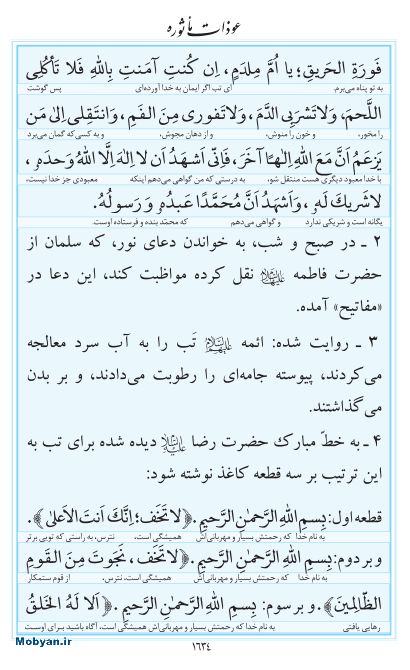 عوذات مأثوره
فَورَةِ الحَريقِ؛ يا اُمَّ مِلدَمٍ، اِن كُنتِ آمَنتِ بِاللهِ فَلا تَأكُلِى
به تو پناه می‌برم. ای تب اگر ایمان به خدا آورده‌ای پس گوشت
اللَّحمَ، وَلاتَشرَبِى الدَّمَ، وَلاتَفورى مِنَ الفَمِ، وَانتَقِلى اِلىٰ مَن
را مخور، و خون را منوش، و از دهان مجوش، و به کسی‌که گمان می‌برد
يَزعَمُ اَنَّ مَعَ اللهِ اِلٰهًا آخَرَ، فَاِنّى اَشهَدُ اَن لااِلٰهَ اِلَّا اللهُ وَحدَهُ،
با خدا معبود دیگری هست منتقل شو، به درستی که من گواهی می‌دهم اینکه معبودی جز خدا نیست،
لاشَريكَ لَهُ، وَاَشهَدُ اَنَّ مُحَمَّدًا عَبدُهُ وَ رَسولُهُ.
یگانه است و شریکی ندارد و گواهی می‌دهم که محمّد بنده و فرستاده اوست.
۲ ـ در صبح و شب، به خواندن دعای نور، که سلمان از
حضرت فاطمه علیهاالسلام نقل کرده مواظبت کند، این دعا در
«مفاتیح» آمده.
۳ ـ روایت شده: ائمه علیهم‌السلام تَب را به آب سرد معالجه
می‌کردند، پیوسته جامه‌ای را رطوبت می‌دادند، و بر بدن
می‌گذاشتند.
۴ ـ به خطّ مبارک حضرت رضا علیه‌السلام دیده شده برای تب به
این ترتیب بر سه قطعه کاغذ نوشته شود:
قطعه اول: بِسمِ اللهِ الرَّحمٰنِ الرَّحيمِ. ﴿لا تَخَف؛ اِنَّكَ اَنتَ الاَعلىٰ﴾.
به نام خدا که رحمتش بسیار و مهربانی‌اش همیشگی است، نترس، به راستی که تویی برتر
و بر دوم: بِسمِ اللهِ الرَّحمٰنِ الرَّحيمِ. ﴿لا تَخَف، نَجَوتَ مِنَ القَومِ
به نام خدا که رحمتش بسیار و مهربانی‌اش همیشگی است، نترس، از قوم ستمکار
الظّالِمينَ﴾. و بر سوم: بِسمِ اللهِ الرَّحمٰنِ الرَّحيمِ. ﴿اَلا لَهُ الخَلقُ
رهایی یافتی به نام خدا که رحمتش بسیار و مهربانی‌اش همیشگی است، آگاه باشید بـرای اوست
Mobyan.ir
۱۶۳۴